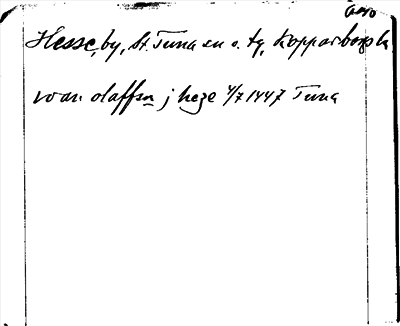 Hesse, by, St. Tuna sn o. tg, Kopparbergs l.
roar olaffson j heze 4/7 1447 Tuna